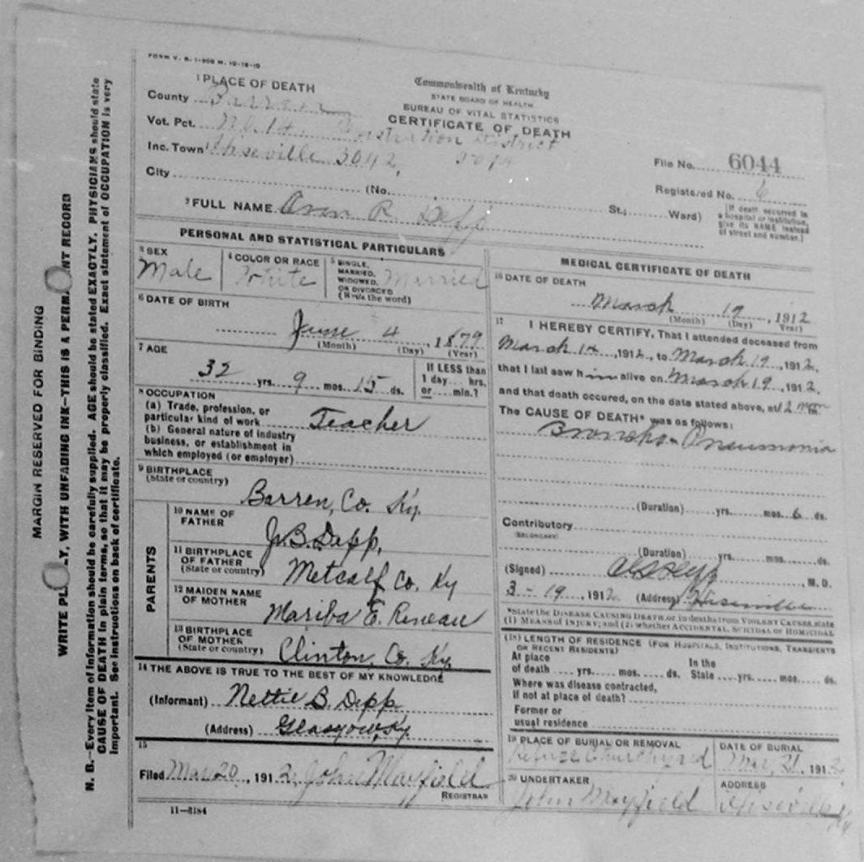 FORM V. S. 1-50M M. 10-18-10
1 PLACE OF DEATH
Commonwealth of Kentucky
STATE BOARD OF HEALTH
BUREAU OF VITAL STATISTICS
CERTIFICATE OF DEATH
County Barren
Vot. Pct. No. 14 Registration District
Inc. Town Hiseville 3042,
File No. 6044
City
(No. St.; Ward)
Registered No. 6
(If death occurred in a hospital or institution, give its NAME instead of street and number.)
2 FULL NAME R. Depp
PERSONAL AND STATISTICAL PARTICULARS
3 SEX
Male
4 COLOR OR RACE
White
5 SINGLE, MARRIED, WIDOWED, OR DIVORCED (Write the word)
Married
6 DATE OF BIRTH
June 4, 1879
(Month) (Day) (Year)
7 AGE
32 yrs. 9 mos. 15 ds.
If LESS than 1 day ... hrs. or ... min.?
8 OCCUPATION
(a) Trade, profession, or particular kind of work Teacher
(b) General nature of industry business, or establishment in which employed (or employer)
9 BIRTHPLACE
(State or country)
Barren, Co. Ky.
PARENTS
10 NAME OF FATHER
J. B. Depp,
11 BIRTHPLACE OF FATHER
(State or country)
Metcalf Co. Ky
12 MAIDEN NAME OF MOTHER
Mariba E. Reneau
13 BIRTHPLACE OF MOTHER
(State or country)
Clinton, Co. Ky.
14 THE ABOVE IS TRUE TO THE BEST OF MY KNOWLEDGE
(Informant) Nettie B. Depp
(Address) Glasgow, Ky
15
Filed Mar 20, 1912 John Mayfield
REGISTRAR
11-3184
MEDICAL CERTIFICATE OF DEATH
16 DATE OF DEATH
March 19, 1912
(Month) (Day) (Year)
17 I HEREBY CERTIFY, That I attended deceased from
March 14, 1912, to March 19, 1912,
that I last saw him alive on March 19, 1912,
and that death occured, on the date stated above, at 12 m.
The CAUSE OF DEATH* was as follows:
Broncho-Pneumonia
(Duration) yrs. mos. 6 ds.
Contributory
(SECONDARY)
(Duration) yrs. mos. ds.
(Signed) M. D.
3-19, 1912 (Address) Hiseville
*State the DISEASE CAUSING DEATH, or in deaths from VIOLENT CAUSES, state (1) MEANS OF INJURY; and (2) whether ACCIDENTAL, SUICIDAL or HOMICIDAL
(18) LENGTH OF RESIDENCE (FOR HOSPITALS, INSTITUTIONS, TRANSIENTS OR RECENT RESIDENTS)
At place of death yrs. mos. ds. In the State yrs. mos. ds.
Where was disease contracted, if not at place of death?
Former or usual residence
19 PLACE OF BURIAL OR REMOVAL
Churchyard
DATE OF BURIAL
Mar, 21, 1912
20 UNDERTAKER
John Mayfield
ADDRESS
Hiseville Ky
MARGIN RESERVED FOR BINDING
WRITE PL LY, WITH UNFADING INK—THIS IS A PERMA NT RECORD
N. B.—Every item of information should be carefully supplied. AGE should be stated EXACTLY. PHYSICIANS should state
CAUSE OF DEATH in plain terms, so that it may be properly classified. Exact statement of OCCUPATION is very
important. See instructions on back of certificate.